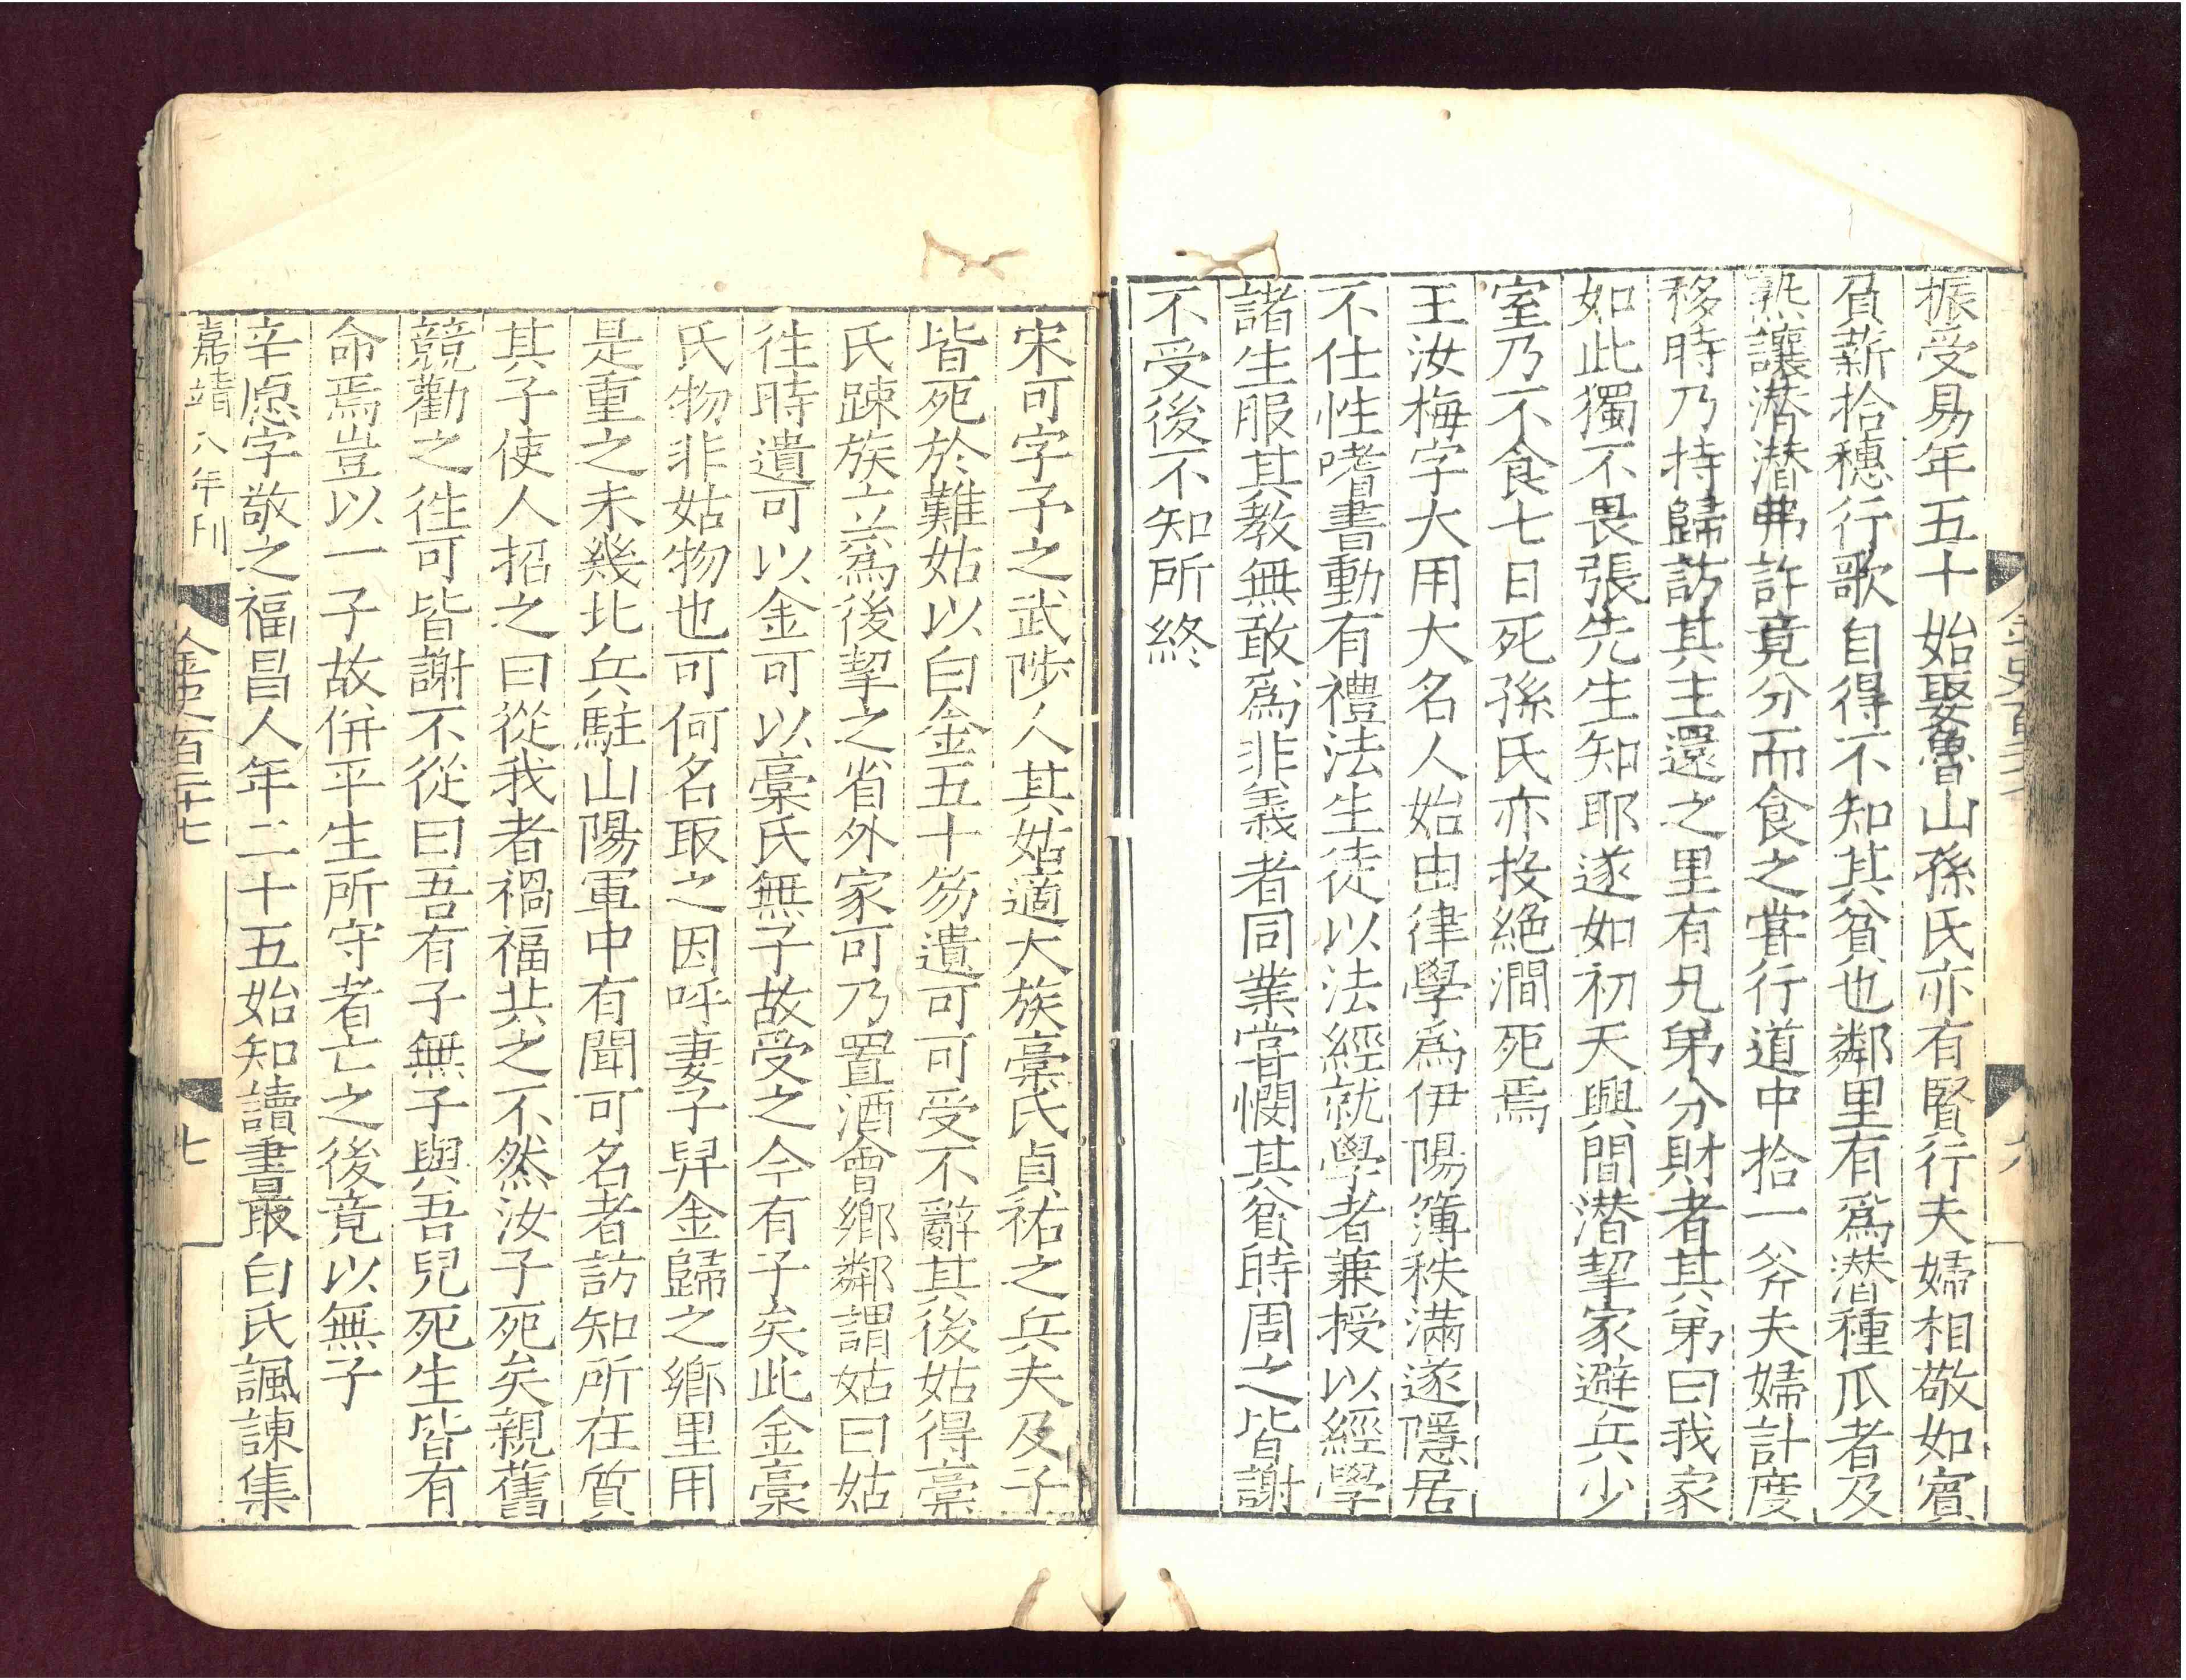 振受易年五十始娶魯山孫氏亦有賢行夫婦相敬如賓
負薪拾穗行歌自得不知其貧也鄰里有爲潛種瓜者及
熟讓潛潛弗許竟分而食之甞行道中拾一斧夫婦計度
移時乃持歸訪其主還之里有兄弟分財者其弟曰我家
如此獨不畏張先生知耶遂如初天興間潛挈家避兵少
室乃不食七日死孫氏亦投絶澗死焉
王汝梅字大用大名人始由律學爲伊陽簿秩滿遂隱居
不仕性嗜書動有禮法生徒以法經就學者兼授以經學
諸生服其教無敢爲非義者同業甞憫其貧時周之皆謝
不受後不知所終
宋可字予之武陟人其姑適大族槀氏貞祐之兵夫及子
皆死於難姑以白金五十笏遺可可受不辭其後姑得槀
氏踈族立爲後挈之省外家可乃置酒會鄉鄰謂姑曰姑
徃時遺可以金可以槀氏無子故受之今有子矣此金槀
氏物非姑物也可何名取之因呼妻子舁金歸之鄉里用
是重之未幾北兵駐山陽軍中有聞可名者訪知所在質
其子使人招之曰從我者禍福共之不然汝子死矣親舊
競勸之徃可皆謝不從曰吾有子無子與吾兒死生皆有
命焉豈以一子故併平生所守者亡之後竟以無子
辛愿字敬之福昌人年二十五始知讀書最白氏諷諫集
嘉靖八年刊
金史百二十七
七